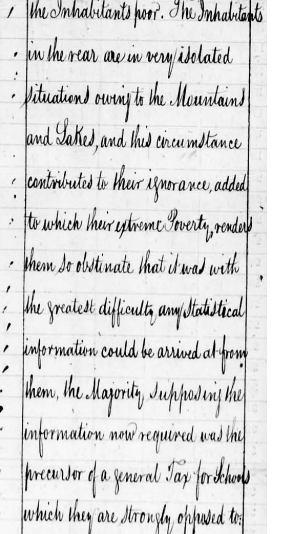 the Inhabitants poor. The Inhabitants
in the rear are in very isolated
situations owing to the Mountains
and Lakes, and this circumstance
contributes to their ignorance, added
to which their extreme Poverty, renders
them so obstinate that it was with
the greatest difficulty any Statistical
information could be arrived at from
them, the Majority supposing the
information now required was the
precursor of a general Tax for Schools
which they are strongly opposed to: